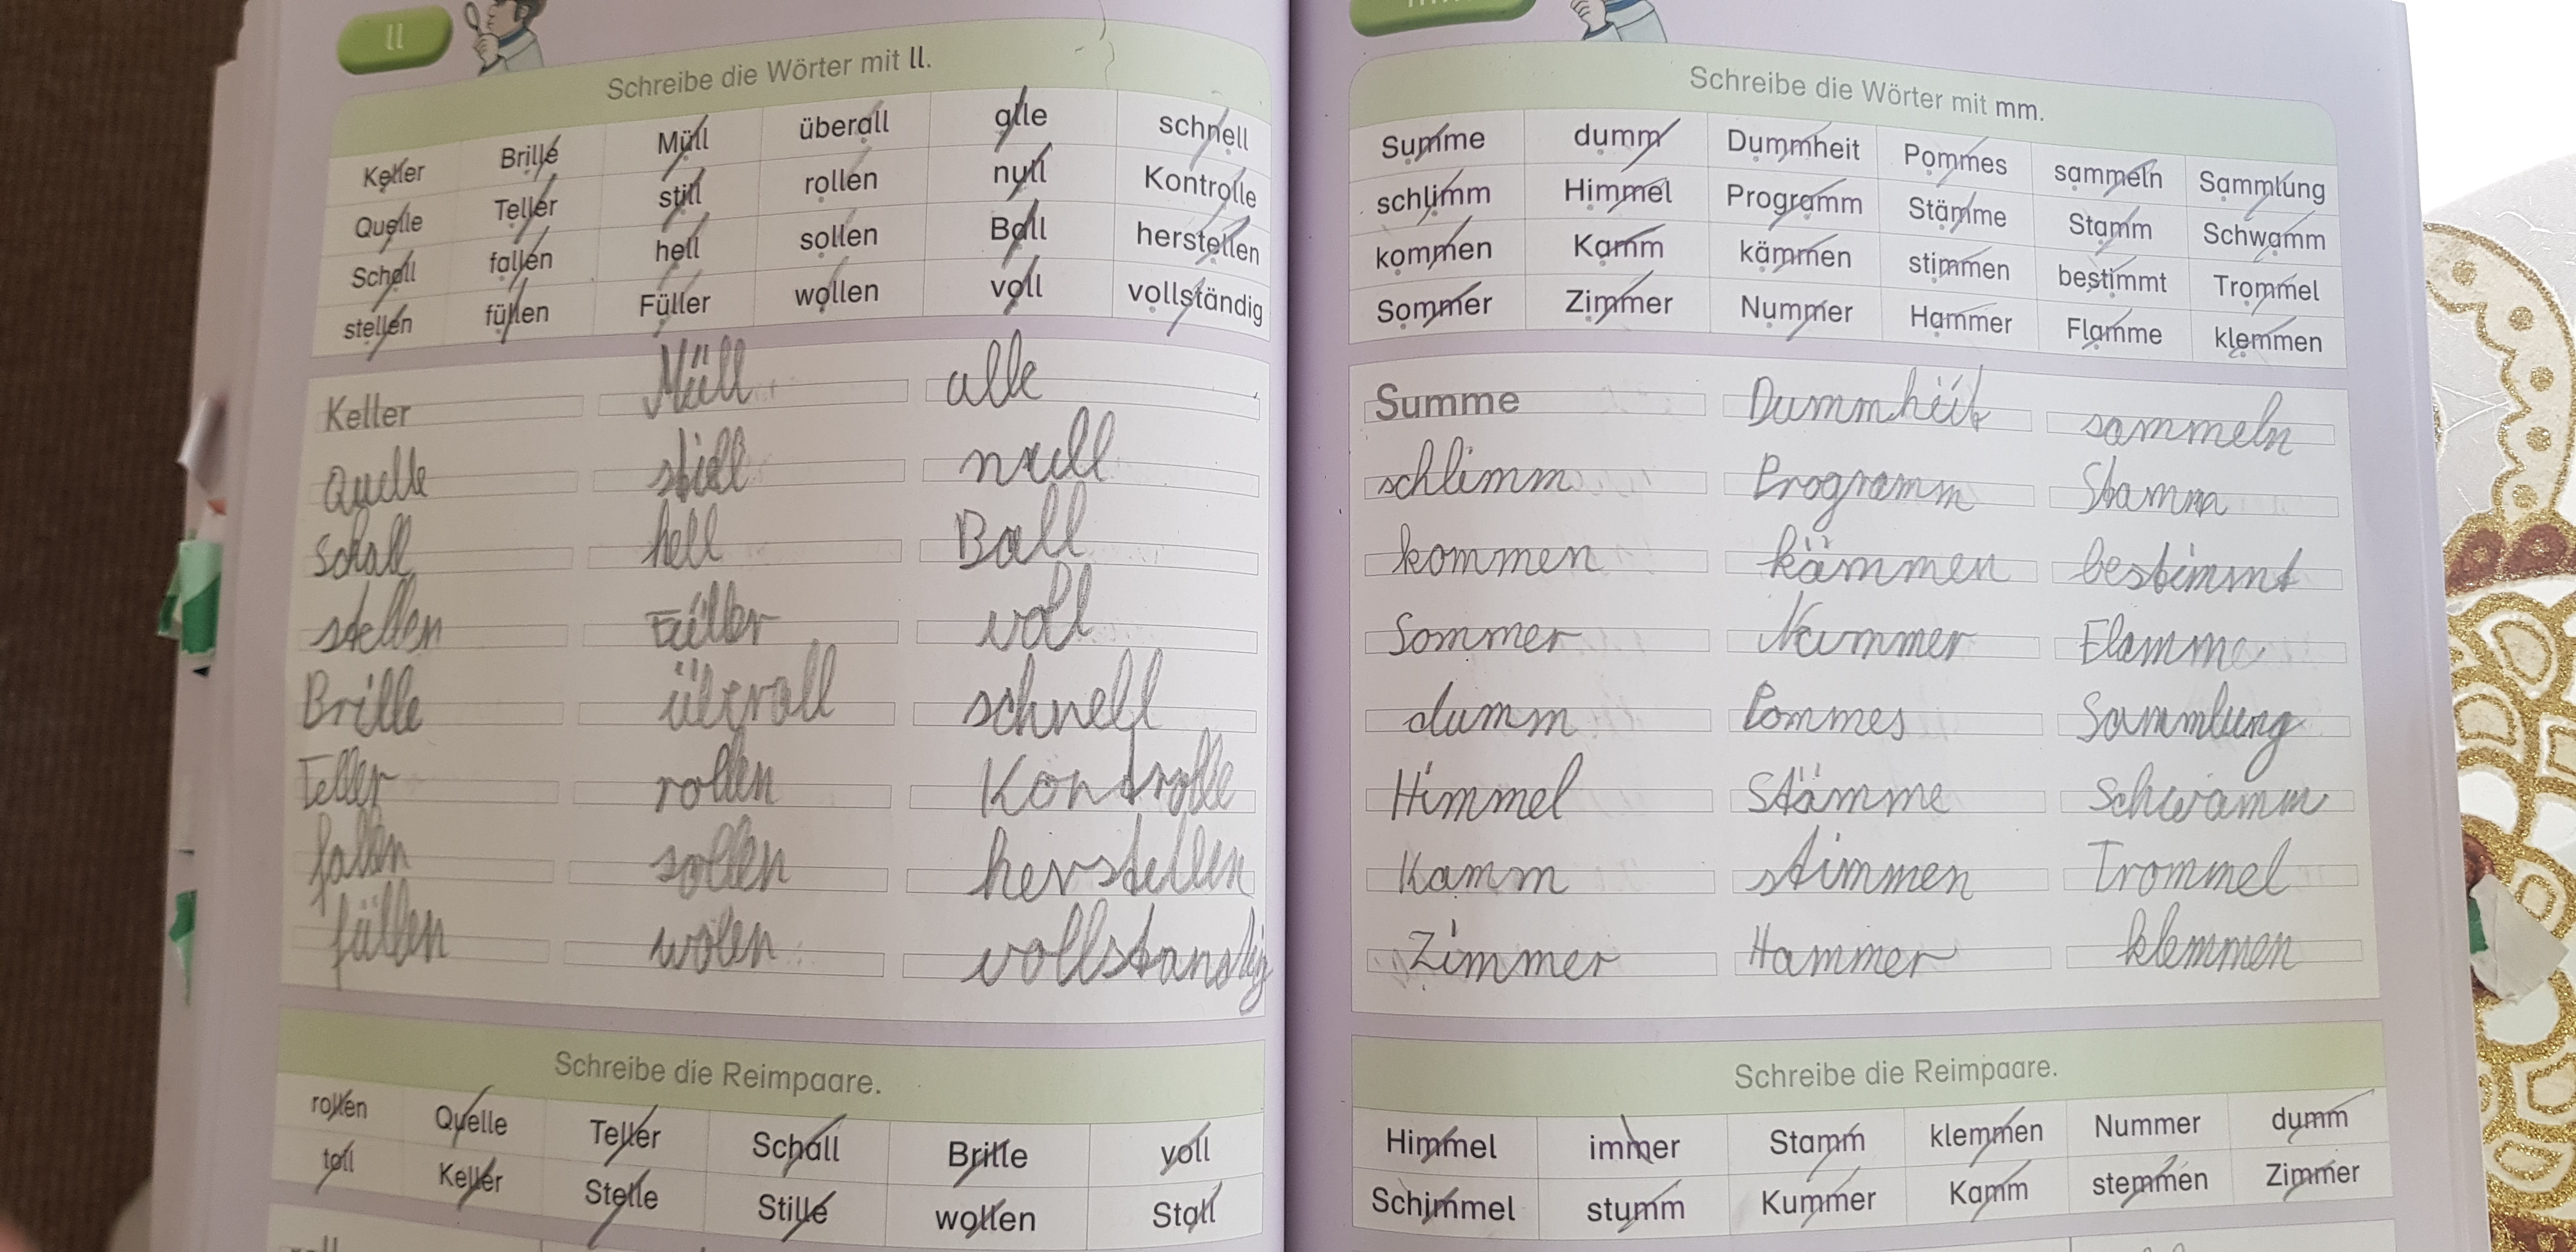 ll
Schreibe die Wörter mit ll.
Keller Brille Müll überall alle schnell
Quelle Teller still rollen null Kontrolle
Schall fallen hell sollen Ball herstellen
stellen füllen Füller wollen voll vollständig
Keller Müll alle
Quelle still null
Schall hell Ball
stellen Füller voll
Brille überall schnell
Teller rollen Kontrolle
fallen sollen herstellen
füllen wolen vollstandig
Schreibe die Reimpaare.
rollen Quelle Teller Schall Brille voll
toll Keller Stelle Stille wollen Stall
Schreibe die Wörter mit mm.
Summe dumm Dummheit Pommes sammeln Sammlung
schlimm Himmel Programm Stämme Stamm Schwamm
kommen Kamm kämmen stimmen bestimmt Trommel
Sommer Zimmer Nummer Hammer Flamme klemmen
Summe Dummheit sammeln
schlimm Programm Stamm
kommen kämmen bestimmt
Sommer Nummer Flamme
dumm Pommes Sammlung
Himmel Stämme Schwamm
Kamm stimmen Trommel
Zimmer Hammer klemmen
Schreibe die Reimpaare.
Himmel immer Stamm klemmen Nummer dumm
Schimmel stumm Kummer Kamm stemmen Zimmer